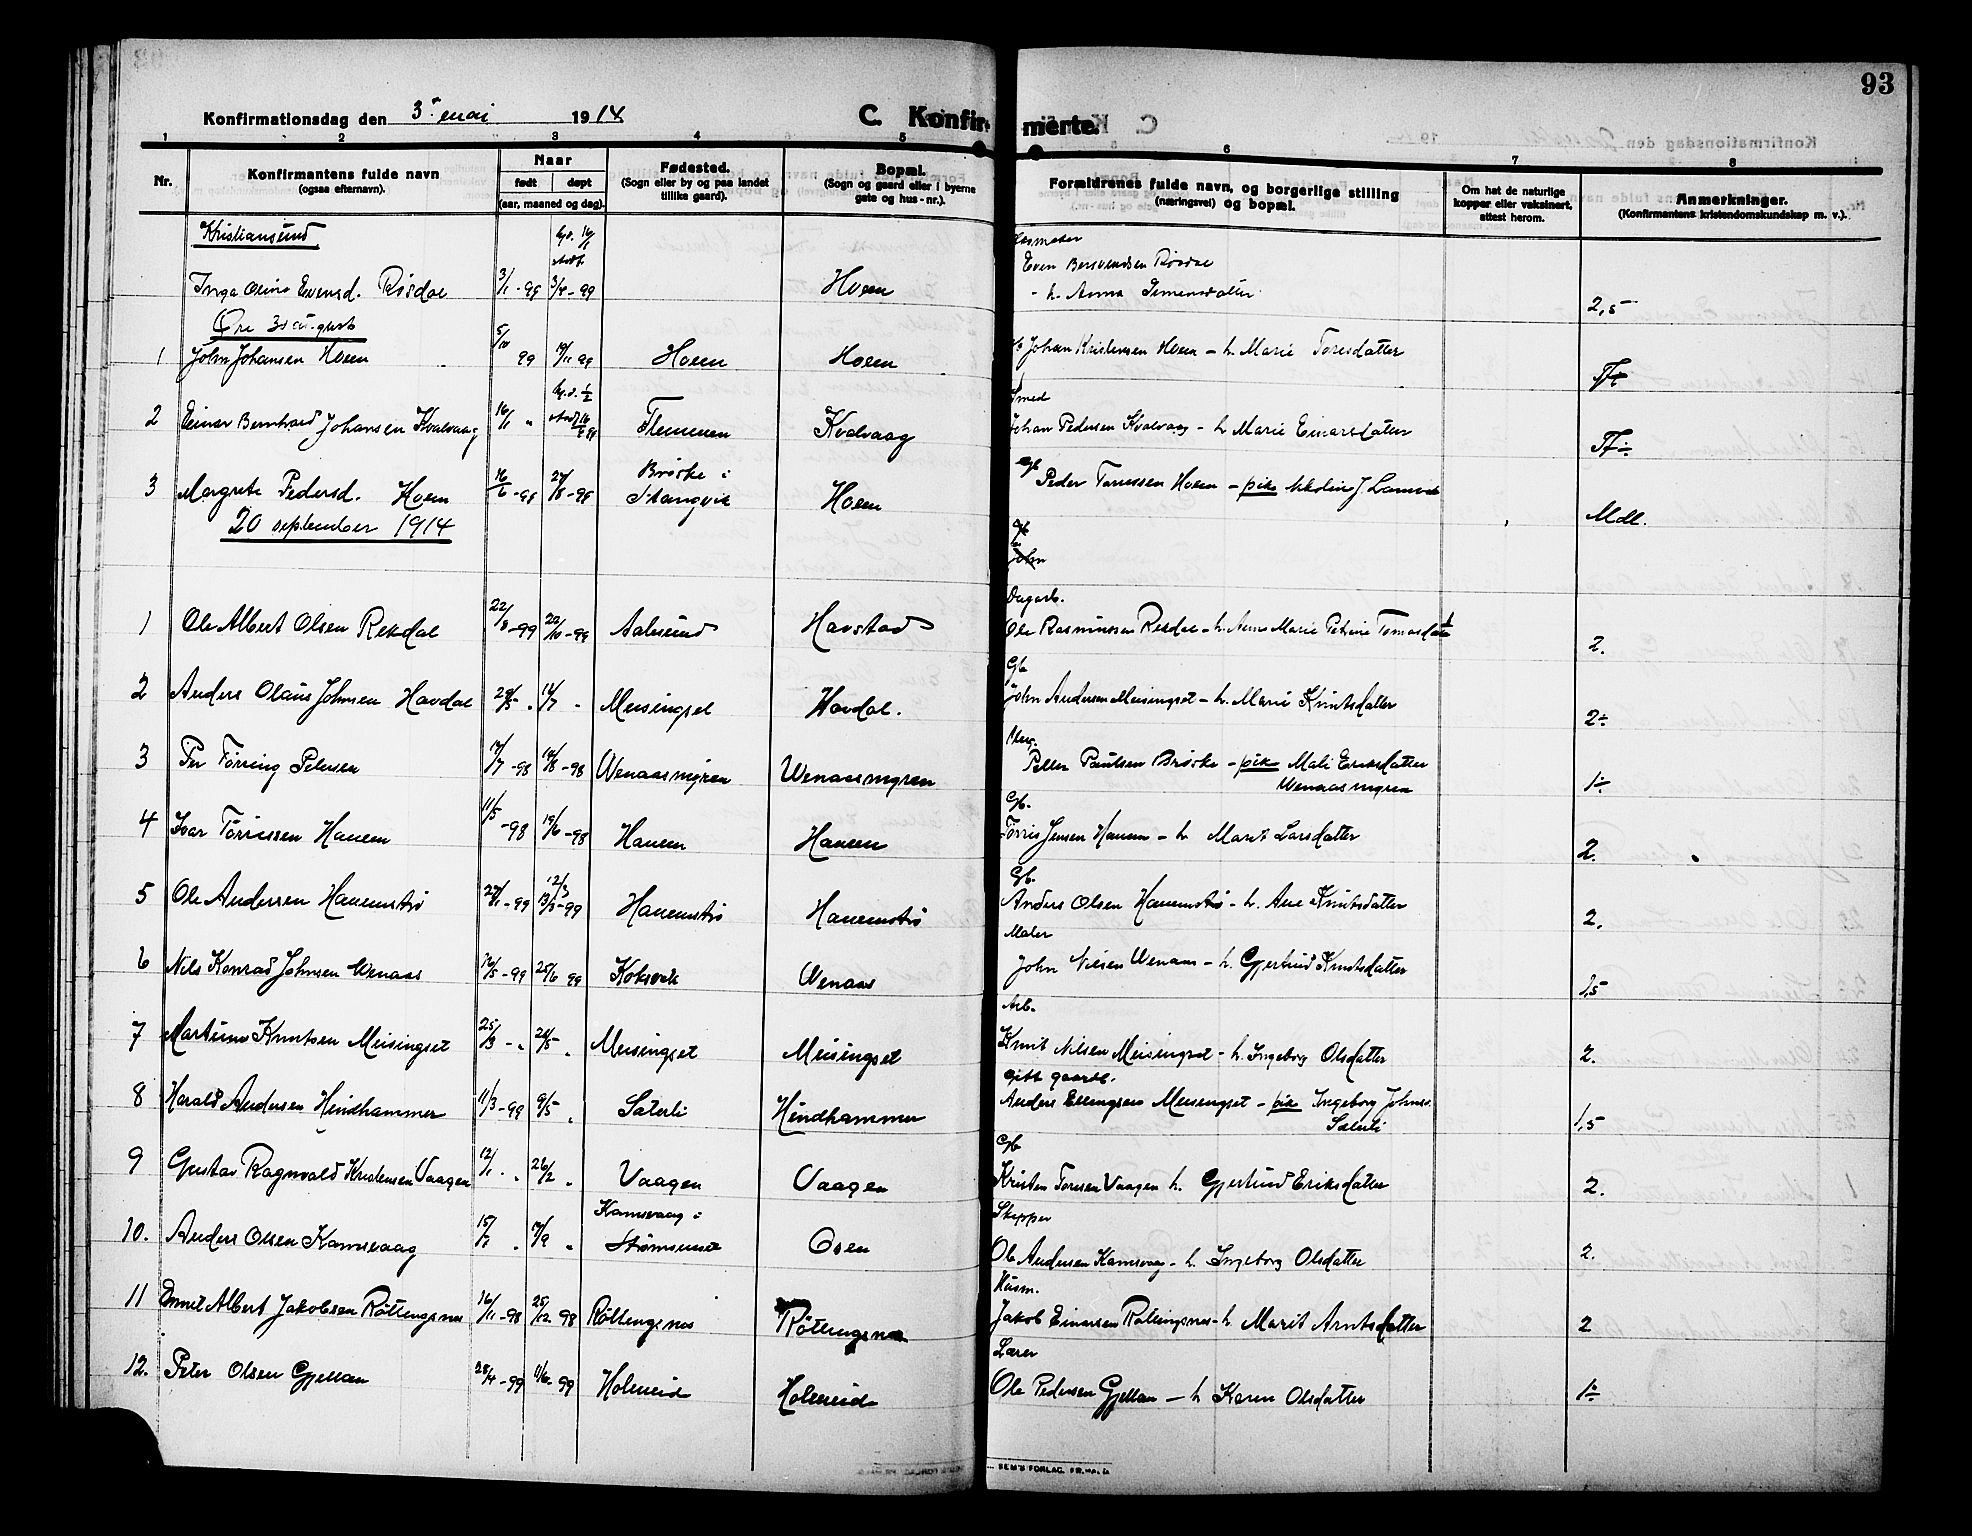 93
Konfirmationsdag den 3. mai 1914 C. Konfirmerte.
1 2 3 4 5 6 7 8
Nr. Konfirmantens fulde navn (ogsaa efternavn). Naar født døpt (aar, maaned og dag). Fødested. (Sogn eller by og paa landet tillike gaard). Bopæl. (Sogn og gaard eller i byerne gate og hus-nr.). Forældrenes fulde navn, og borgerlige stilling (næringsvei) og bopæl. Om hat de naturlige kopper eller vaksinert, attest herom. Anmerkninger. (Konfirmantens kristendomskundskap m. v.).
Kristiansund
Inga Oline Evensd. Røsdal 3/1-99 3/4-99 Hoem Even Røsdal - h. Anna 2,5
Øre 30 august
1 John Johansen Hoem 5/10 99 19/11 99 Hoem Hoem Johan Kristensen Hoem - h. Marie Toresdatter
Smed
2 Einar Bernhard Johansen Kvalvaag 16/1 " Flemmen Kvalvaag Johan Pedersen Kvalvaag - h. Marie Einarsdatter
3 Margrete Pedersd. Hoem 16/6-98 27/8-98 Brøske i Stangvik Hoem Peder Hoem - pike Mdl.
20 september 1914
Gb
John
Dagarb.
1 Ole Albert Olsen Rekdal 22/8-99 22/10-99 Aalesund Havstad Ole Rasmussen Rekdal - h. Anne Marie Petrine Tomasdatter 2.
Gb
2 Anders Olaus Johnsen Havdal " 14/7 " Meisingset Havdal. John Andersen Meisingset - h. Marie Knutsdatter 2÷
3 Per Tørring Petersen 17/7-98 14/8-98 Wenaasmyren Wenaasmyren Petter Paulsen Brøske - pike Mali Eriksdatter Wenaasmyren 1÷
Gb.
4 Ivar Tørrissen Hanem 11/5-98 19/6-98 Hanem Hanem Tørris Jensen Hanem - h. Marit Larsdatter 2.
Gb.
5 Ole Andersen Hanemstrø 27/1-99 12/3 13/3-99 Hanemstrø Hanemstrø Anders Olsen Hanemstrø - h. Ane Knutsdatter 2.
Maler
6 Nils Konrad Johnsen Wenaas 16/5-99 25/6 99 Koksvik Wenaas John Nilsen Wenaas - h. Gjertrud Knutsdatter 1,5
Arb.
7 Martinus Knutsen Meisingset 25/3 - " 28/5 " Meisingset Meisingset Knut Nilsen Meisingset - h. Ingeborg Olsdatter 2.
gift gaardb.
8 Harald Andersen Hindhammer 11/3-99 9/5 " Sæterli Hindhammer Anders Ellingsen Meisingset - pike Ingeborg Johnsd. Sæterli 1,5
Gb
9 Gustav Ragnvald Kristensen Vaagen 12/1 " 26/2 " Vaagen Vaagen Kristen Toresen Vaagen h. Gjertrud Eriksdatter 2.
Skipper
10. Anders Olsen Kamsvaag 15/7 " 17/9 " Kamsvaag i Strømsund Osen Ole Andersen Kamsvaag - h. Ingeborg Olsdatter 2.
Husm.
11 Emil Albert Jakobsen Røttingsnes 16/11-98 25/12-98 Røttingsnes Røttingsnes Jakob Einarsen Røttingsnes - h Marit Arntsdatter 2
Lærer
12. Peter Olsen Gjellan 28/4-99 11/6-99 Holmeid Holmeid Ole Pedersen Gjellan - h Karen Olsdatter 1÷
SEM'S FORLAG.